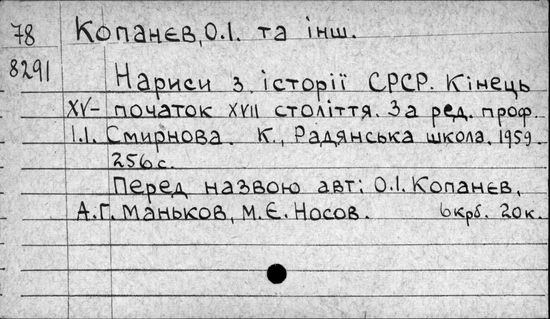 78 Копанєв, О.І. та інш.
8291
Нариси з історії СРСР. Кінець
XV- початок XVII століття. За ред. проф.
І.І. Смирнова. К., Радянська школа. 1959.
256с.
Перед назвою авт: О.І. Копанєв,
А.Г. Маньков, М.Є. Носов. 6крб. 20к.